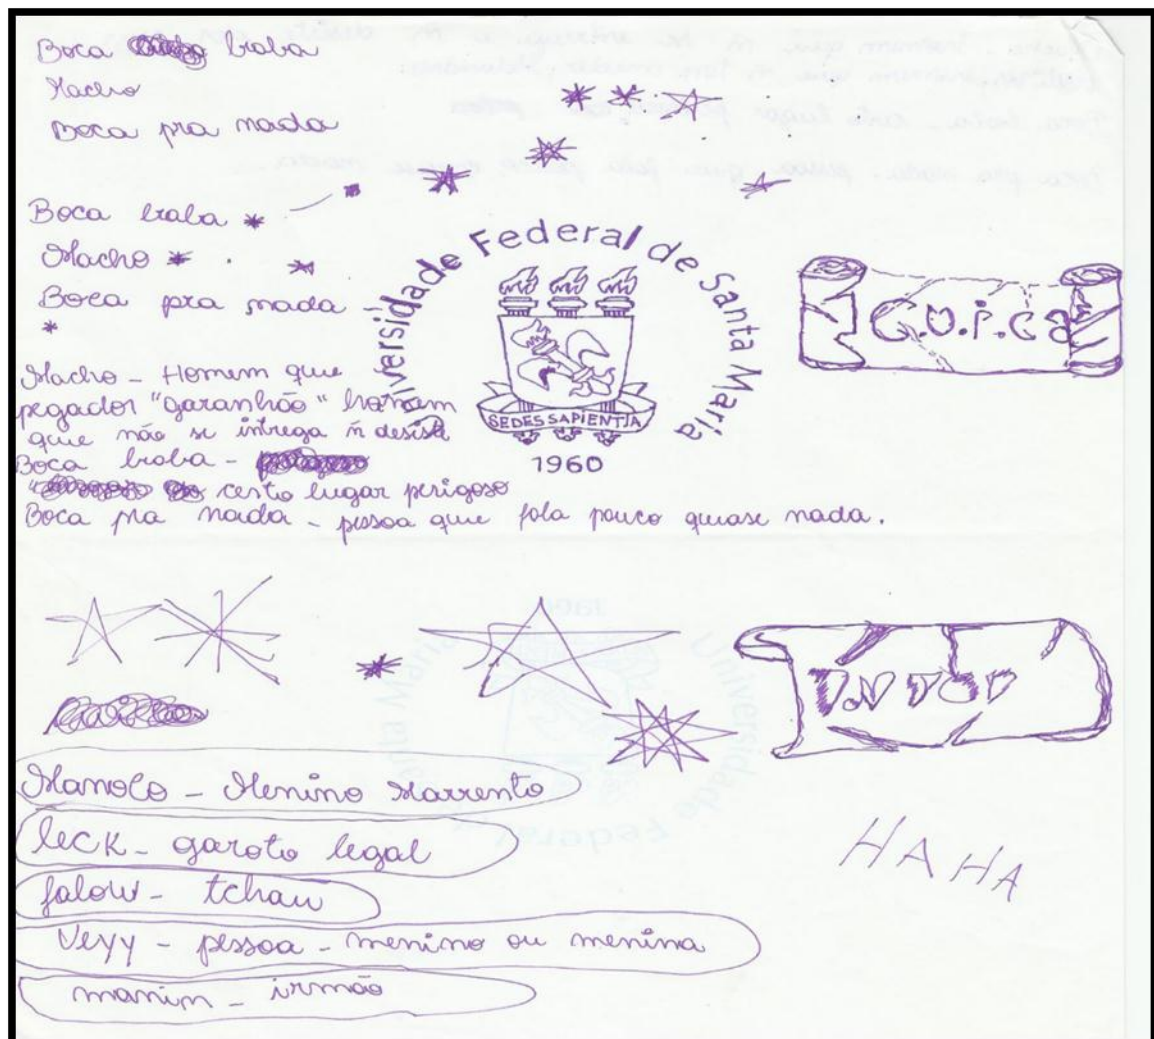 Boca braba
Macho
Boca pra nada
Boca braba
Macho
Boca pra nada
Macho - Homem que
pegador "garanhão" homem
que não se intrega ñ desiste
Boca braba -
" certo lugar perigoso
Boca pra nada - pessoa que fala pouco quase nada.
Universidade Federal de Santa Maria
SEDES SAPIENTIA
1960
C.O.P.C.a
Manolo - Menino Marrento
leck - garoto legal
falow - tchau
Veyy - pessoa - menino ou menina
manin - irmão
HAHA